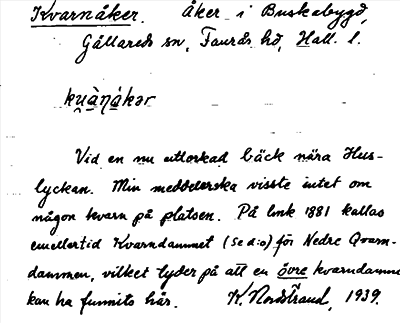 Kvarnåker. Åker i Buskabygd,
Gållareds sn, Faurås hd, Hall. l.
ku̯àŋákər
Vid en nu uttorkad bäck nära Hus-
lyckan. Min meddelerska visste intet om
någon kvarn på platsen. På lmk 1881 kallas
emellertid Kvarndammet (se d:o) för Nedre Qvarn-
dammen, vilket tyder på att en övre kvarndamm
kan ha funnits här. K. Nordstrand, 1939.